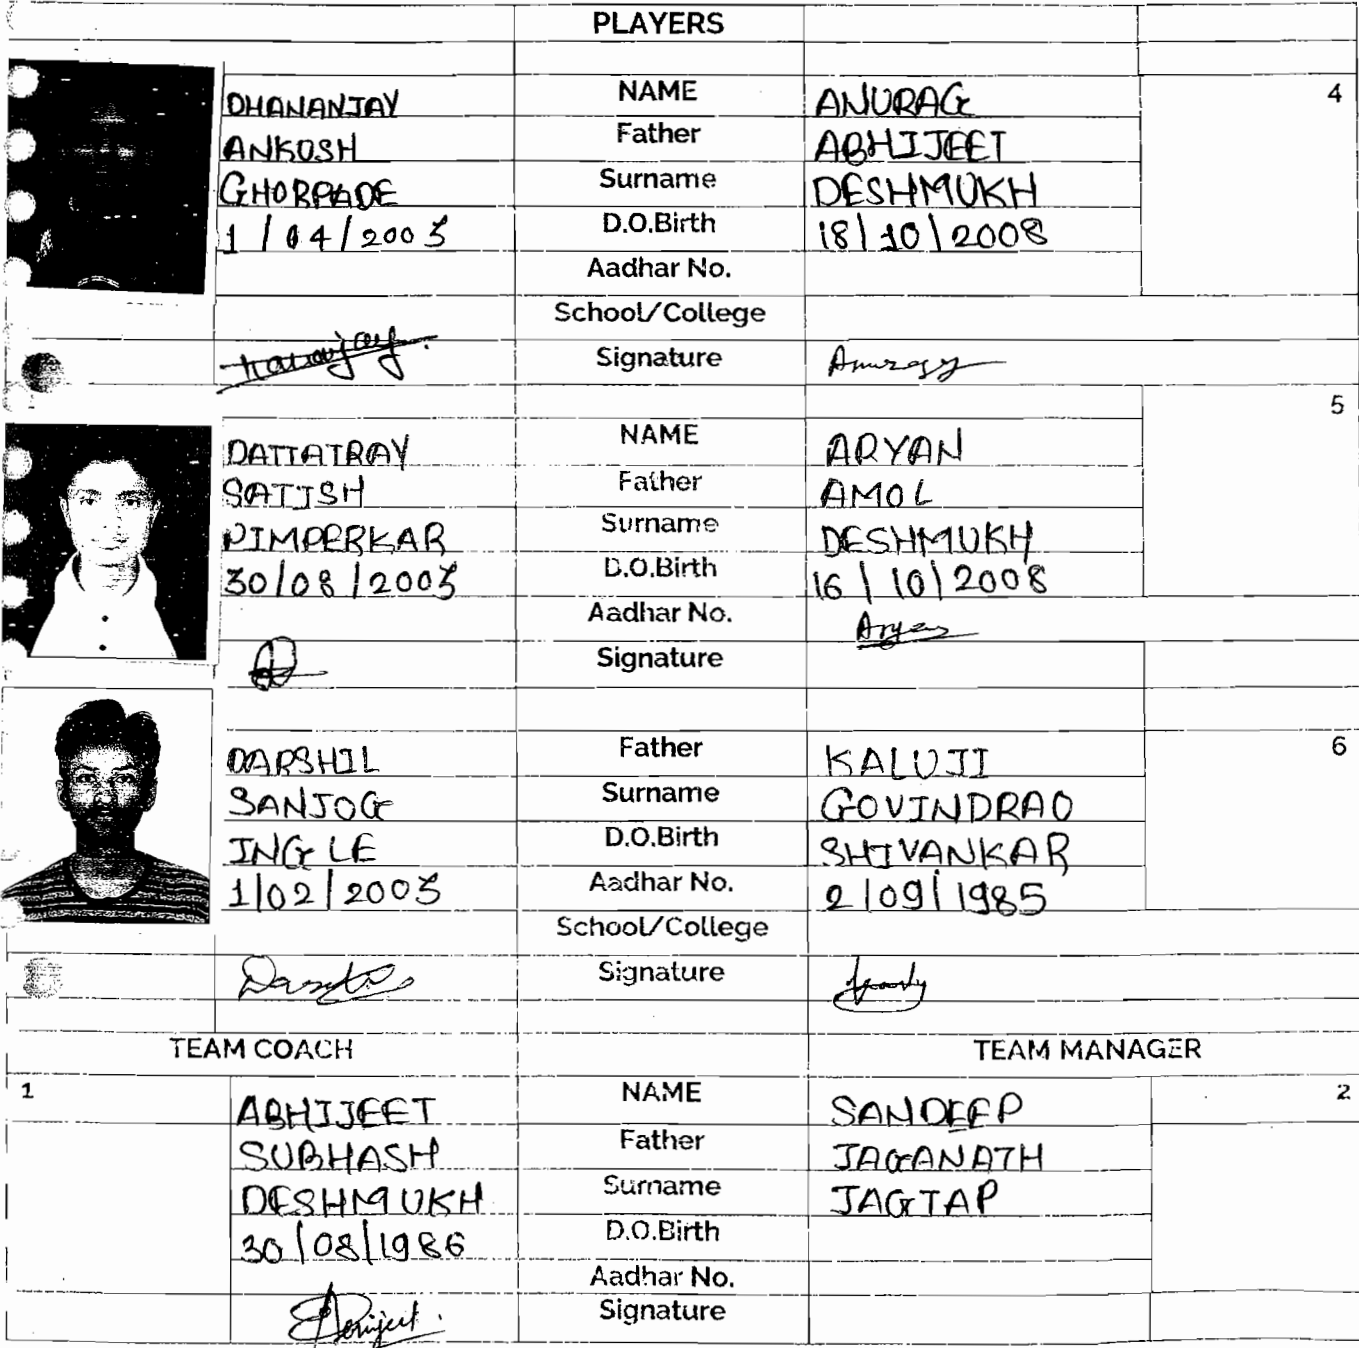 PLAYERS
DHANANJAY NAME ANURAG 4
ANKOSH Father ABHIJEET
GHORPADE Surname DESHMUKH
1/04/2005 D.O.Birth 18/10/2008
Aadhar No.
School/College
Signature Anurag
5
DATTATRAY NAME ARYAN
SATISH Father AMOL
PIMPERKAR Surname DESHMUKH
30/08/2005 D.O.Birth 16/10/2008
Aadhar No. Aryan
Signature
DARSHIL Father KALUJI 6
SANJOG Surname GOVINDRAO
INGLE D.O.Birth SHIVANKAR
1/02/2005 Aadhar No. 2/09/1985
School/College
Signature
TEAM COACH TEAM MANAGER
1 ABHIJEET NAME SANDEEP 2
SUBHASH Father JAGANATH
DESHMUKH Surname JAGTAP
30/08/1986 D.O.Birth
Aadhar No.
Signature